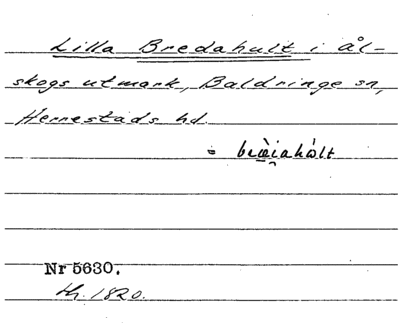 Lilla Bredahult i Ål-
skogs utmark, Baldringe sn,
Herrestads hd.
Nr 5630.
1820.